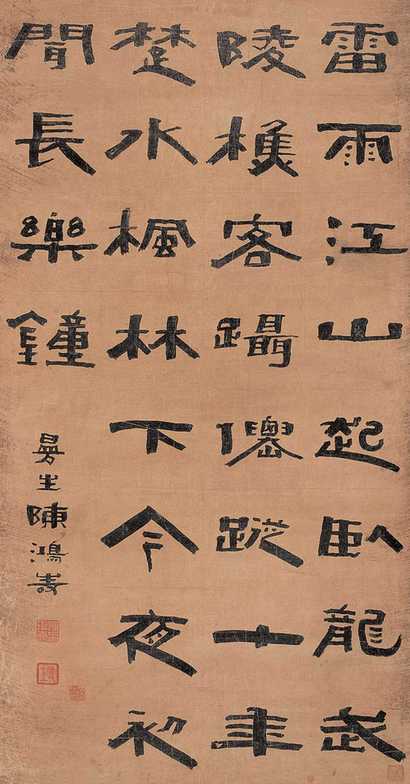 雷雨江山起臥龍武
陵樵客躡僊蹤十年
楚水楓林下今夜初
聞長樂鐘
曼生陳鴻壽